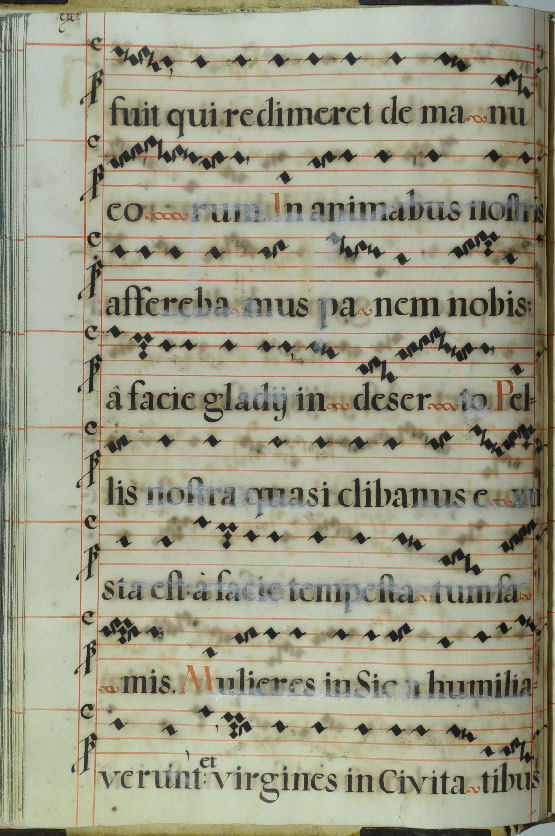 fuit qui redimeret de ma nu
eo rum. In animabus nostris
affereba mus pa nem nobis:
â facie gladij in deser to. Pel-
lis nostra quasi clibanus e xu
sta est: à facie tempesta tum fa
mis. Mulieres in Sion humilia-
verunt: et virgines in Civita tibus